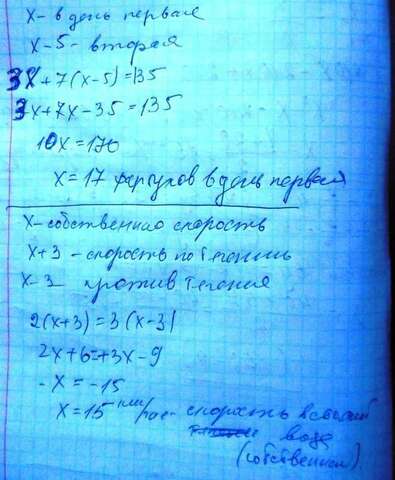 x - в день первая
x-5 - вторая
3x+7(x-5)=135
3x+7x-35=135
10x=170
x=17 фартуков в день первая
x-собственная скорость
x+3 - скорость по течению
x-3 против течения
2(x+3)=3(x-3)
2x+6=+3x-9
-x=-15
x=15 км/час - скорость в стоячей
воде
(собственная)